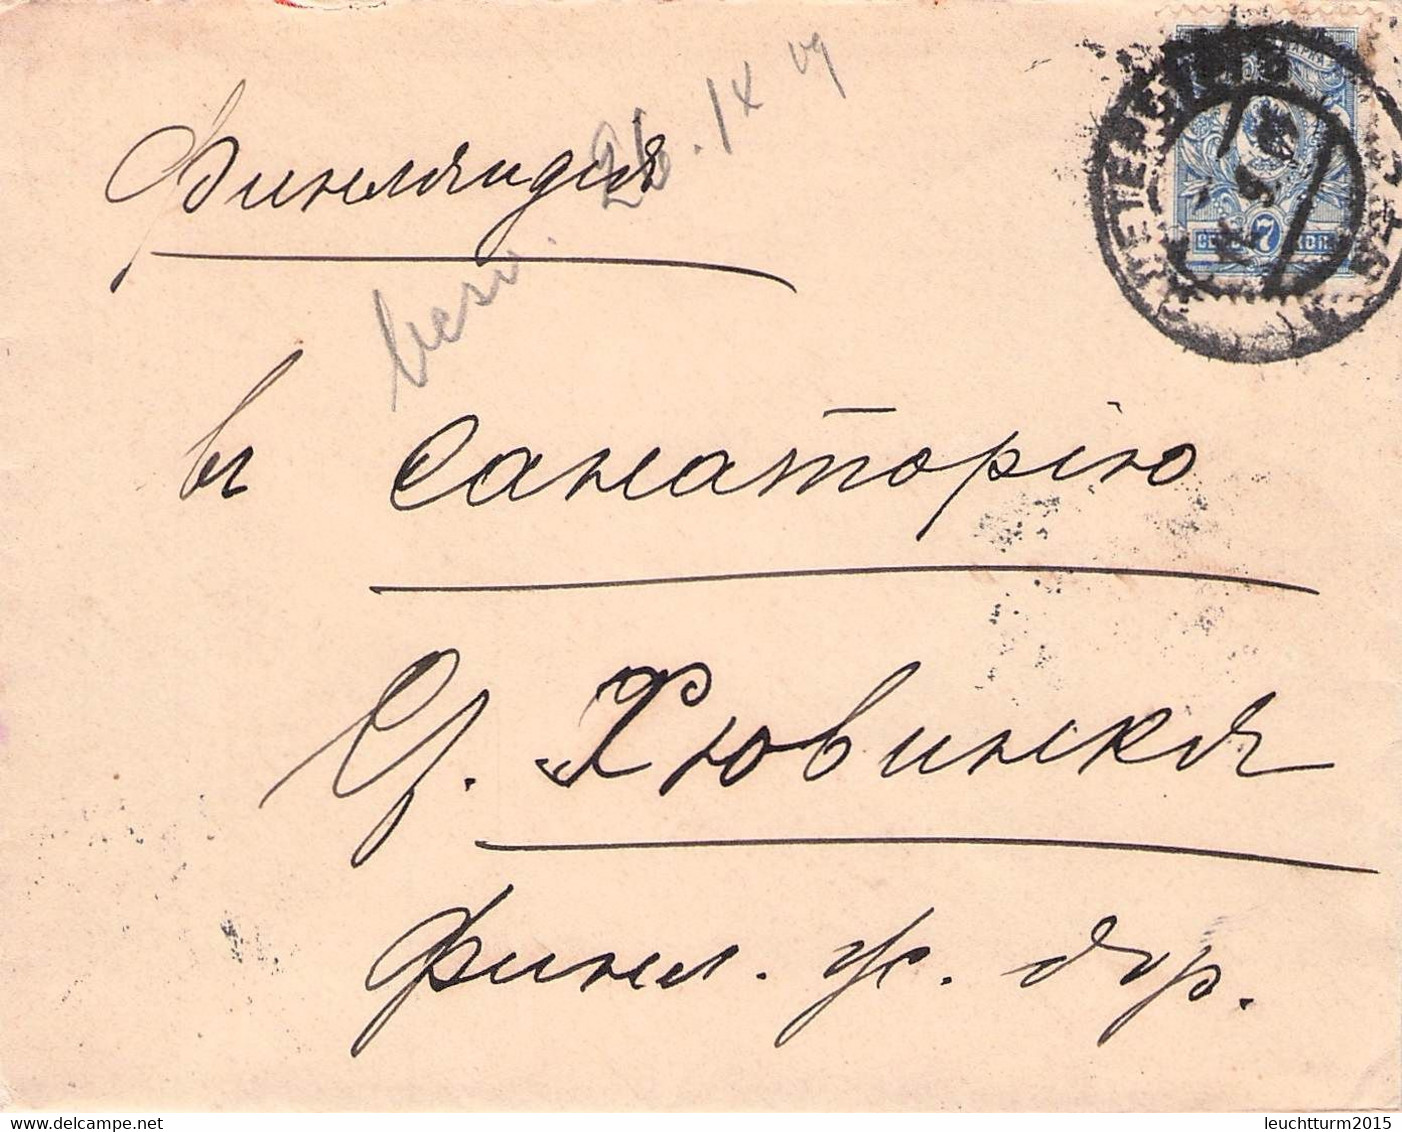 Финляндия
26. IX 09
въ Санаторію
Ст. Хювинкя
финл. ж. дор.
7 КОП
delcampe.net
leuchtturm2015